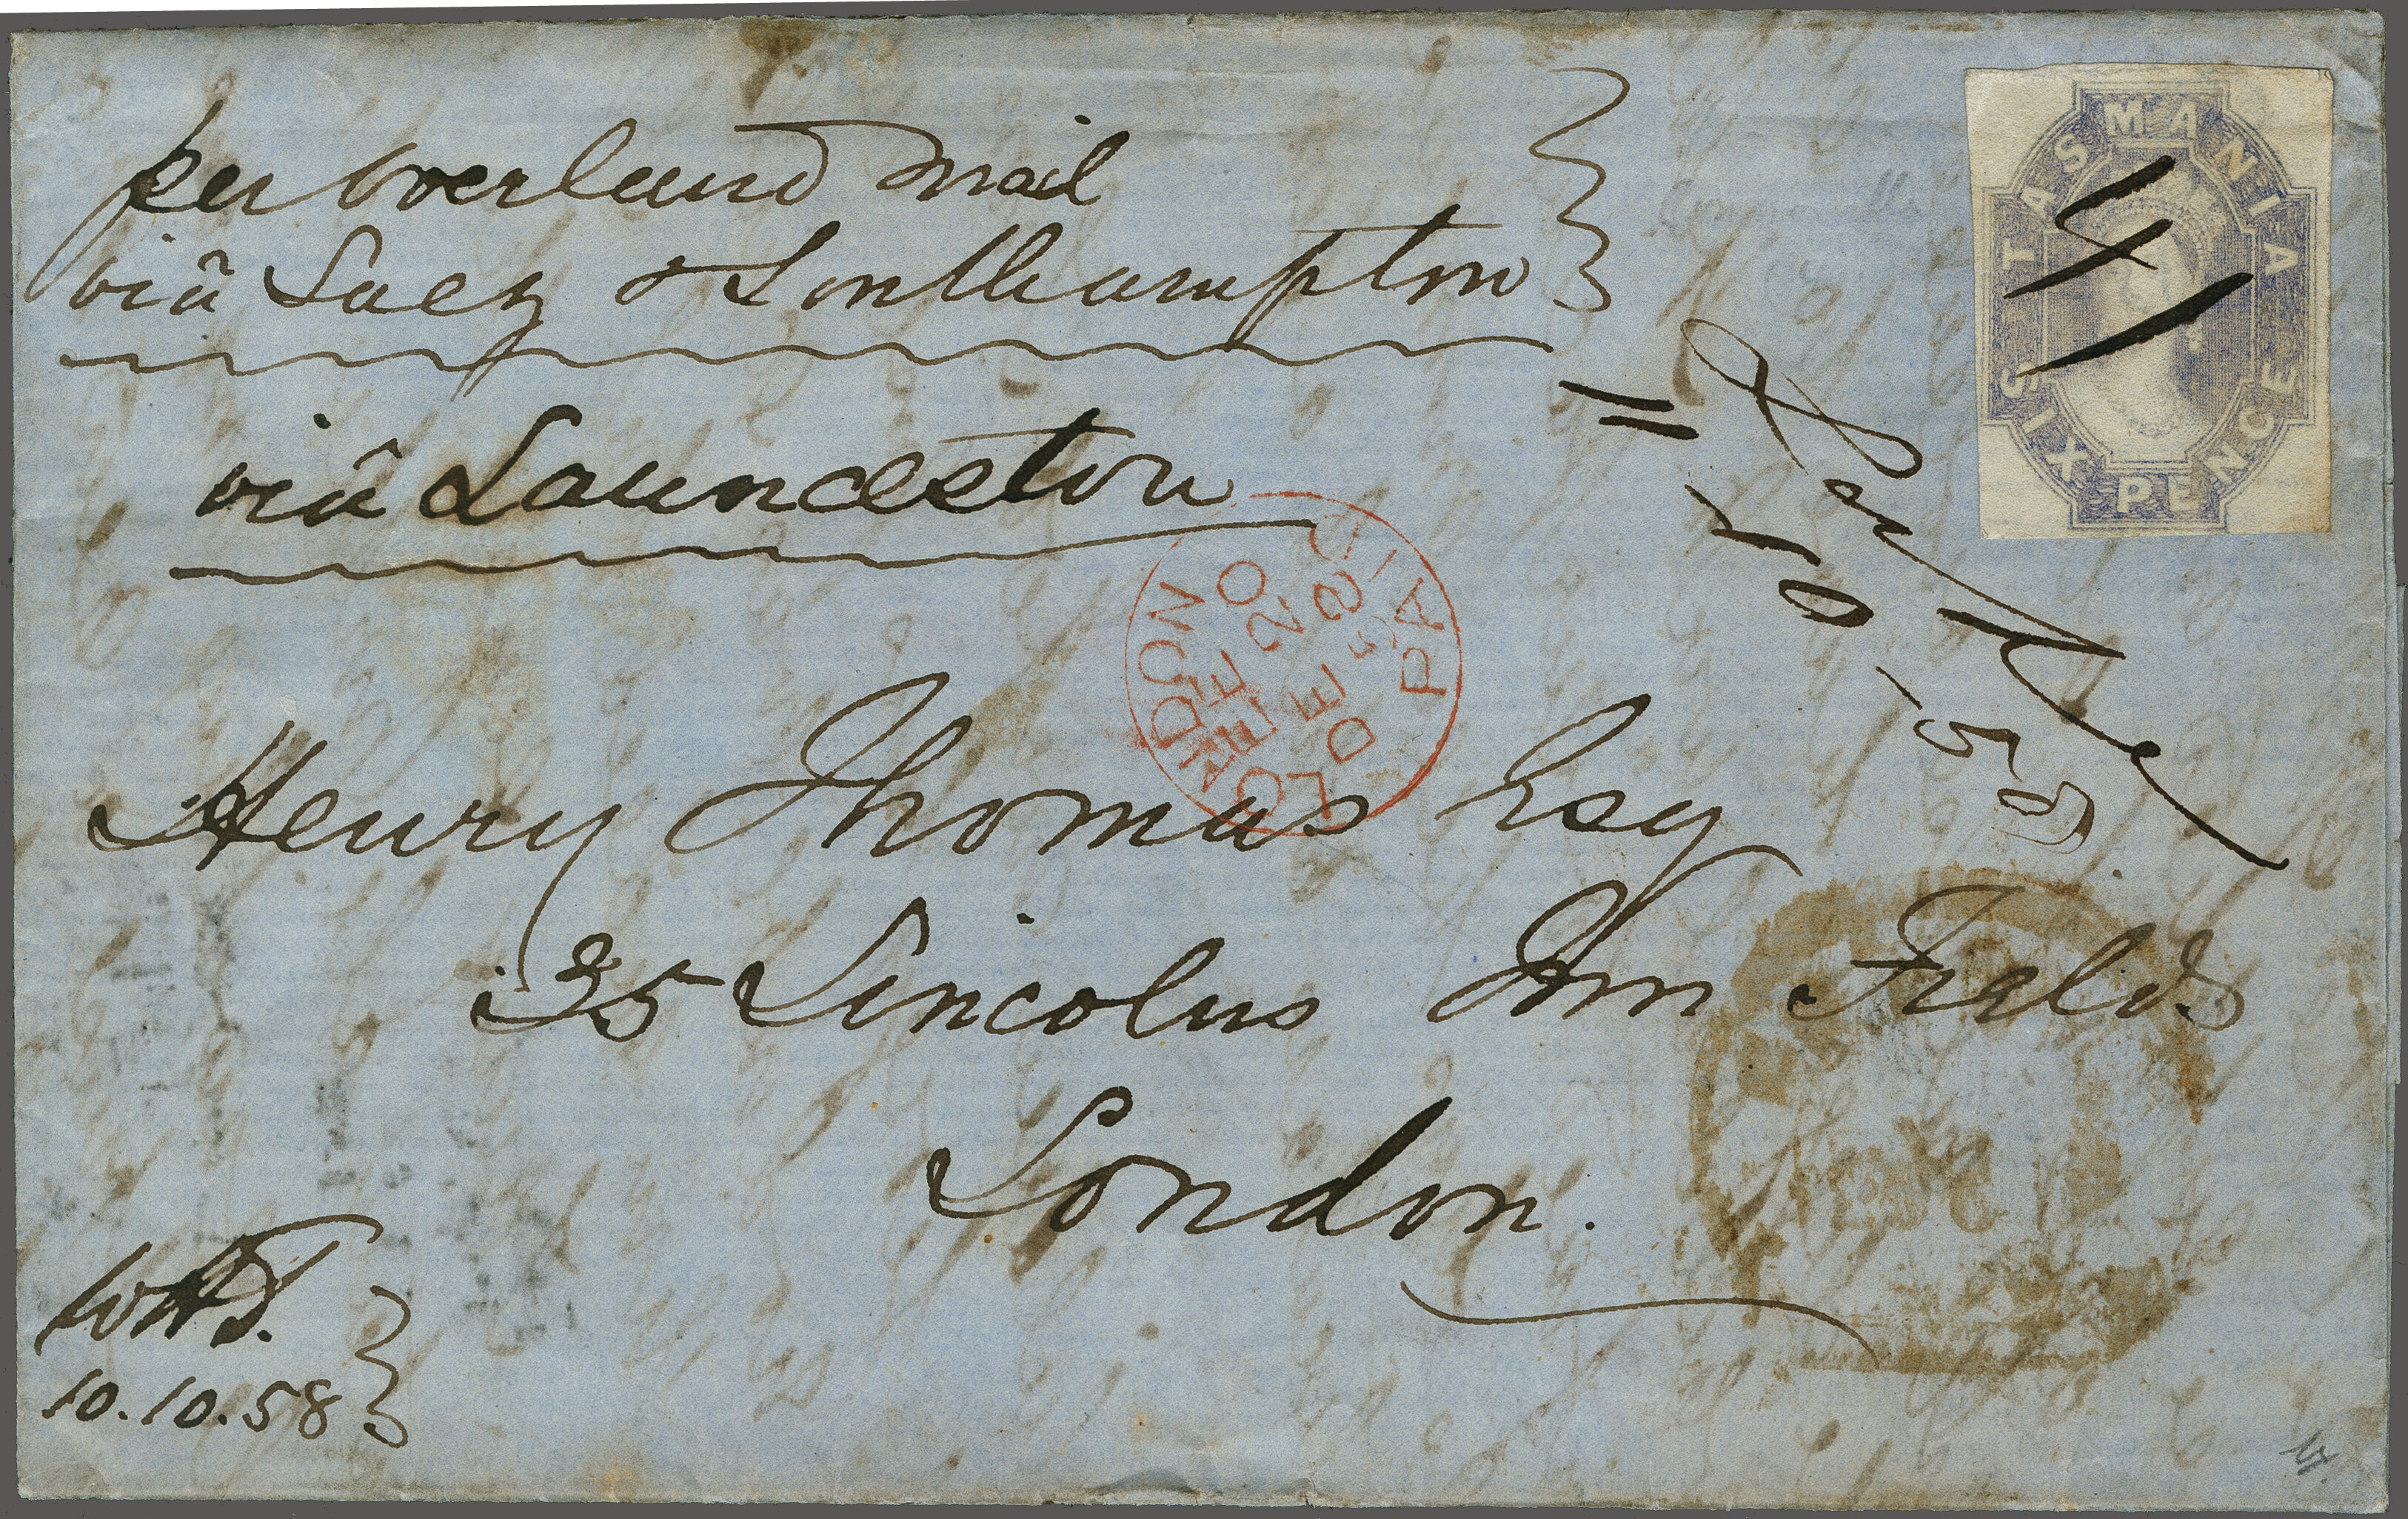 per overland mail
viâ Suez & Southampton
viâ Launceston
TASMANIA
SIXPENCE
11 - 10 - 58
LONDON
PAID
DE 20
58
Henry Thomas Esq
35 Lincolns Inn Fields
London.
10.10.58